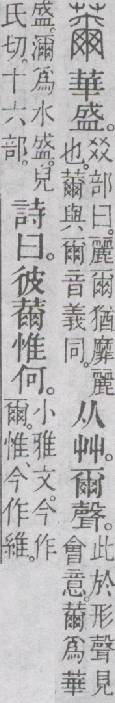 薾
華盛。
㸚部曰。麗爾猶靡麗
也。薾與爾音義同。
从艸。爾聲。
此於形聲見
會意。薾爲華
盛。濔爲水盛。兒
氏切。十六部。
詩曰。彼薾惟何。
小雅文。今作
爾。惟今作維。